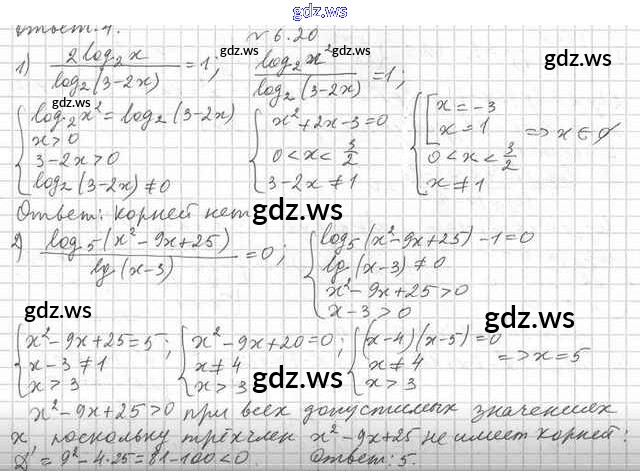 gdz.ws
Ответ: 4.
№ 6.20
1) 2log₂x / log₂(3-2x) = 1; log₂x² / log₂(3-2x) = 1;
{ log₂x² = log₂(3-2x) { x²+2x-3=0 { [ x=-3
x>0 0<x<3/2 x=1 => x∈∅
3-2x>0 3-2x≠1 0<x<3/2
log₂(3-2x)≠0 x≠1
Ответ: корней нет
2) log₅(x²-9x+25) / lg(x-3) = 0; { log₅(x²-9x+25)-1=0
lg(x-3)≠0
x²-9x+25>0
x-3>0
{ x²-9x+25=5; { x²-9x+20=0; { (x-4)(x-5)=0
x-3≠1 x≠4 x≠4 => x=5
x>3 x>3 x>3
x²-9x+25>0 при всех допустимых значениях
x, поскольку трёхчлен x²-9x+25 не имеет корней:
D'=9²-4·25=81-100<0. Ответ: 5.
gdz.ws
gdz.ws
gdz.ws
gdz.ws
gdz.ws
gdz.ws
gdz.ws
gdz.ws
gdz.ws
gdz.ws